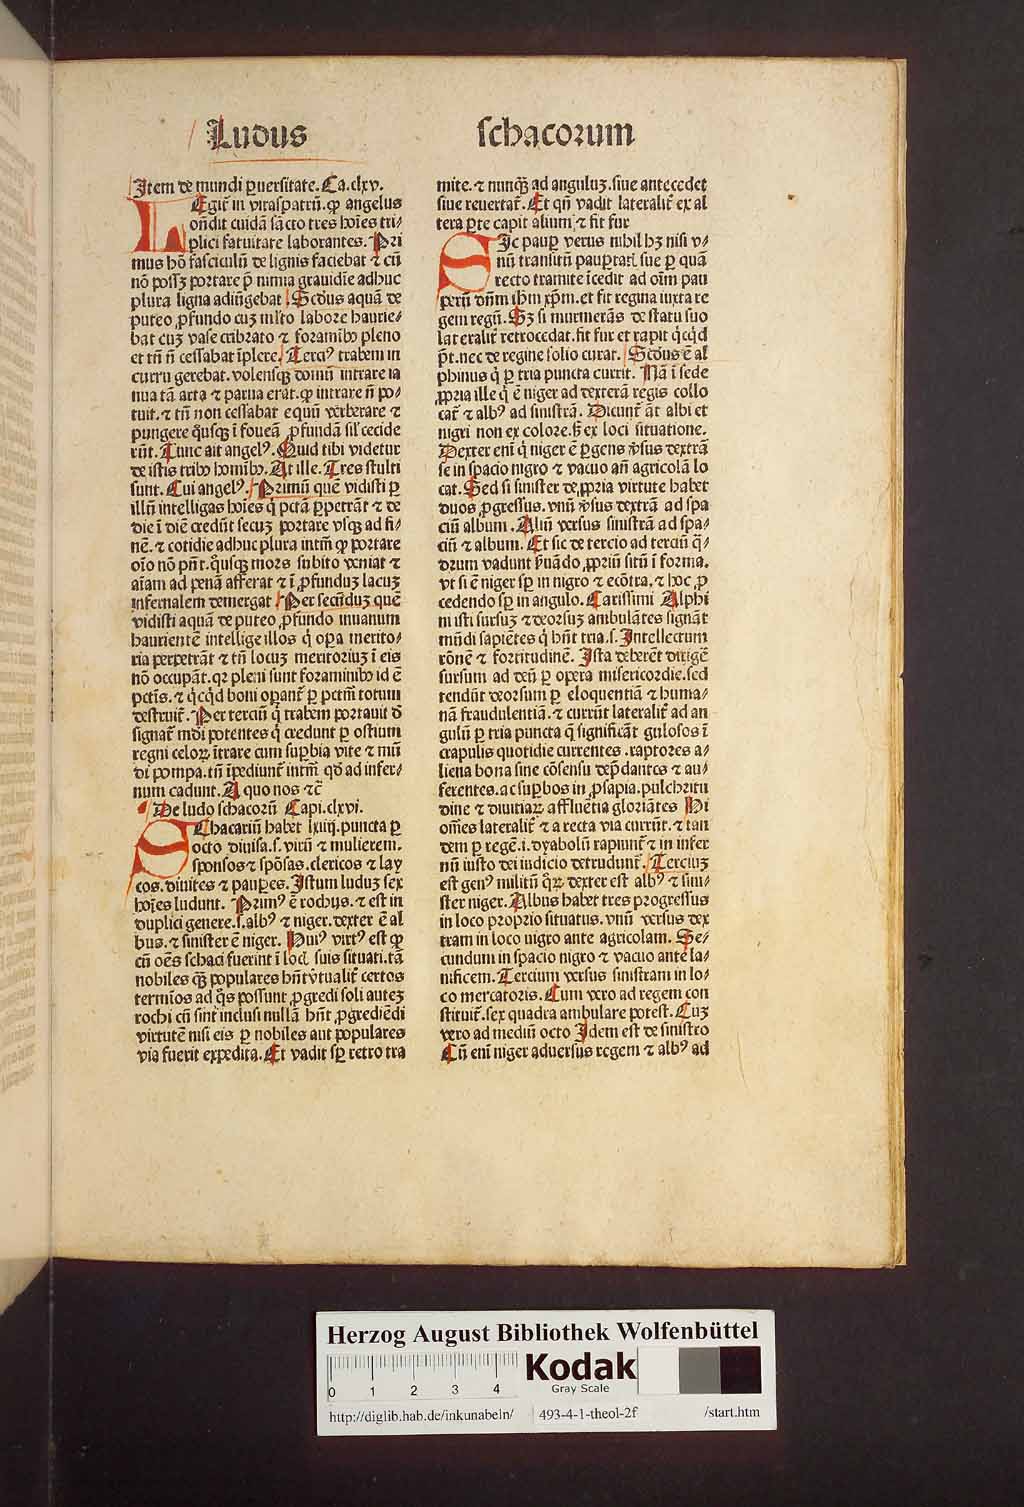 Ludus schacorum
Item de mundi ꝑuersitate. Ca. clxv.
LEgit᷑ in vitaspatrũ. ꝙ angelus
oñdit cuidã sãcto tres hoĩes tri⸗
plici fatuitate laborantes. Pri
mus hõ fasciculũ de lignis faciebat ⁊ cũ
nõ possꝫ portare p̃ nimia grauidĩe adhuc
plura ligna adiũgebat. Scd̃us aquã de
puteo ꝓfundo cuꝫ ml̃to labore haurie⸗
bat cuꝫ vase cribrato ⁊ foramĩbꝰ pleno
et tñ ñ cessabat ĩplere. Terciꝰ trabem in
curru gerebat. volensqꝫ domũ intrare ia
nua tã arta ⁊ parua erat. ꝙ intrare ñ po⸗
tuit. ⁊ tñ non cessabat equũ verberare ⁊
pungere q̃usqꝫ ĩ foueã ꝓfundã sil̃ cecide
rũt. Tunc ait angelꝰ. Quid tibi videtur
de istis tribꝰ homĩbꝰ. At ille. Tres stulti
sunt. Cui angelꝰ. Primũ quẽ vidisti ꝑ
illũ intelligas hoĩes q̃ pctã ꝑpetrãt ⁊ de
die ĩ diẽ credũt secuꝫ portare vsqꝫ ad fi⸗
nẽ. ⁊ cotidie adhuc plura intm̃ ꝙ portare
oĩo nõ pñt. q̃usqꝫ mors subito veniat ⁊
aĩam ad penã afferat ⁊ ĩ ꝓfunduꝫ lacuꝫ
infernalem demergat. Per secũduꝫ quẽ
vidisti aquã de puteo ꝓfundo inuanum
haurientẽ intellige illos q̃ oꝑa merito⸗
ria perpetrãt ⁊ tñ locuꝫ meritoriuꝫ ĩ eis
nõ occupãt. qꝛ pleni sunt foraminibꝰ id ẽ
pctĩs. ⁊ q̃cq̃d boni oꝑant᷑ ꝑ pctm̃ totum
destruit᷑. Per terciũ q̃ trabem portauit đ
signat᷑ mũdi potentes q̃ credunt ꝑ ostium
regni celoꝝ ĩtrare cum suꝑbia vite ⁊ mũ
di pompa. tñ ĩpediunt᷑ intm̃ qđ ad infer⸗
num cadunt. A quo nos ⁊c̃
De ludo schacorũ Capi. clxvi.
SChacariũ habet lxiiij. puncta ꝑ
octo diuisa. s. virũ ⁊ mulierem.
sponsos ⁊ spõsas. clericos ⁊ lay
cos. diuites ⁊ pauꝑes. Istum luduꝫ sex
hoĩes ludunt. Primꝰ ẽ rochꝰ. ⁊ est in
duplici genere. s. albꝰ ⁊ niger. dexter ẽ al
bus. ⁊ sinister ẽ niger. Huiꝰ virtꝰ est ꝙ
cũ oẽs schaci fuerint ĩ loc̃ suis situati. tã
nobiles q̃ꝫ populares hñt ṽtualit᷑ certos
termĩos ad q̃s possunt ꝓgredi soli auteꝫ
rochi cũ sint inclusi nullã hñt ꝓgrediẽdi
virtutẽ nisi eis ꝑ nobiles aut populares
via fuerit expedita. Et vadit sꝑ retro tra
mite. ⁊ nunqꝫ ad anguluꝫ. siue antecedet
siue reuertat᷑. Et qñ vadit lateralit᷑ ex al
tera ꝑte capit alium ⁊ fit fur
SIc pauꝑ verus nihil hꝫ nisi v⸗
nũ transitũ pauꝑtati sue ꝑ quã
recto tramite ĩcedit ad oĩm pau
ꝑerũ dñm ihm̃ xp̃m. et fit regina iuxta re
gem regũ. Sꝫ si murmerãs de statu suo
lateralit᷑ retrocedat. fit fur et rapit q̃cq̃d
p̃t. nec de regine solio curat. Scd̃us ẽ al
phinus q̃ ꝑ tria puncta currit. Nã ĩ sede
ꝓpria ille q̃ ẽ niger ad dexterã regis collo
cat᷑ ⁊ albꝰ ad sinistrã. Dicunt᷑ ãt albi et
nigri non ex colore. sꝫ ex loci situatione.
Dexter enĩ q̃ niger ẽ ꝑgens ṽsus dextrã
se in spacio nigro ⁊ vacuo añ agricolã lo
cat. Sed si sinister de ꝓpria virtute habet
duos ꝓgressus. vnũ ṽsus dextrã ad spa
ciũ album. Aliũ versus sinistrã ad spa⸗
ciũ ⁊ album. Et sic de tercio ad terciũ q̃⸗
drum vadunt ẽuãdo ꝓpriũ sitũ ĩ forma.
vt si ẽ niger sꝑ in nigro ⁊ ecõtra. ⁊ hoc ꝓ
cedendo sꝑ in angulo. Carissimi Alphi
ni isti sursuꝫ ⁊ deorsuꝫ ambulãtes signãt
mũdi sapiẽtes q̃ hñt tria. s. Intellectum
rõnẽ ⁊ fortitudinẽ. Ista deberẽt dirigẽ
sursum ad deũ ꝑ opera misericordie. sed
tendũt deorsum ꝑ eloquentiã ⁊ huma⸗
nã fraudulentiã. ⁊ currũt lateralit᷑ ad an
gulũ ꝑ tria puncta q̃ significãt gulosos ĩ
crapulis quotidie currentes. raptores a⸗
liena bona sine cõsensu dep̃dantes ⁊ au⸗
ferentes. ac suꝑbos in ꝓsapia. pulchritu
dine ⁊ diuitiaꝝ affluẽtia gloriãtes Hi
om̃es lateralit᷑ ⁊ a recta via currũt. ⁊ tan
dem ꝑ regẽ. i. dyabolũ rapiunt᷑ ⁊ in infer
nũ iusto dei iudicio detrudunt᷑. Terciuꝫ
est genꝰ militũ q̃ꝝ dexter est albꝰ ⁊ sini⸗
ster niger. Albus habet tres progressus
in loco proprio situatus. vnũ versus dex
tram in loco nigro ante agricolam. Se⸗
cundum in spacio nigro ⁊ vacuo ante la⸗
nificem. Tercium versus sinistram in lo⸗
co mercatoris. Cum vero ad regem con
stituit᷑. sex quadra ambulare potest. Cuꝫ
vero ad mediũ octo Idem est de sinistro
Cũ enĩ niger aduersus regem ⁊ albꝰ ad
Herzog August Bibliothek Wolfenbüttel
0 1 2 3 4
Kodak
Gray Scale
http://diglib.hab.de/inkunabeln/ 493-4-1-theol-2f /start.htm